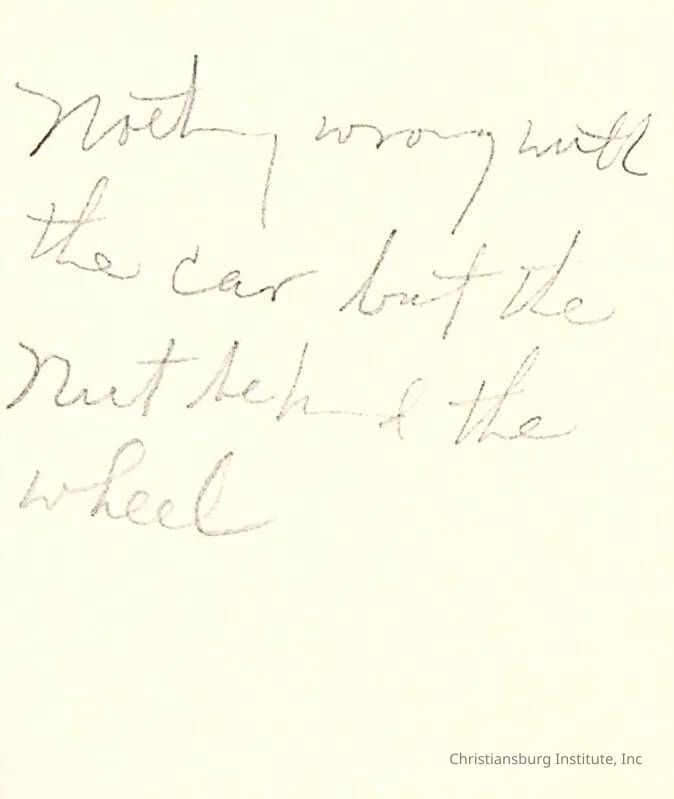 Nothing wrong with
the car but the
Nut behind the
wheel
Christiansburg Institute, Inc